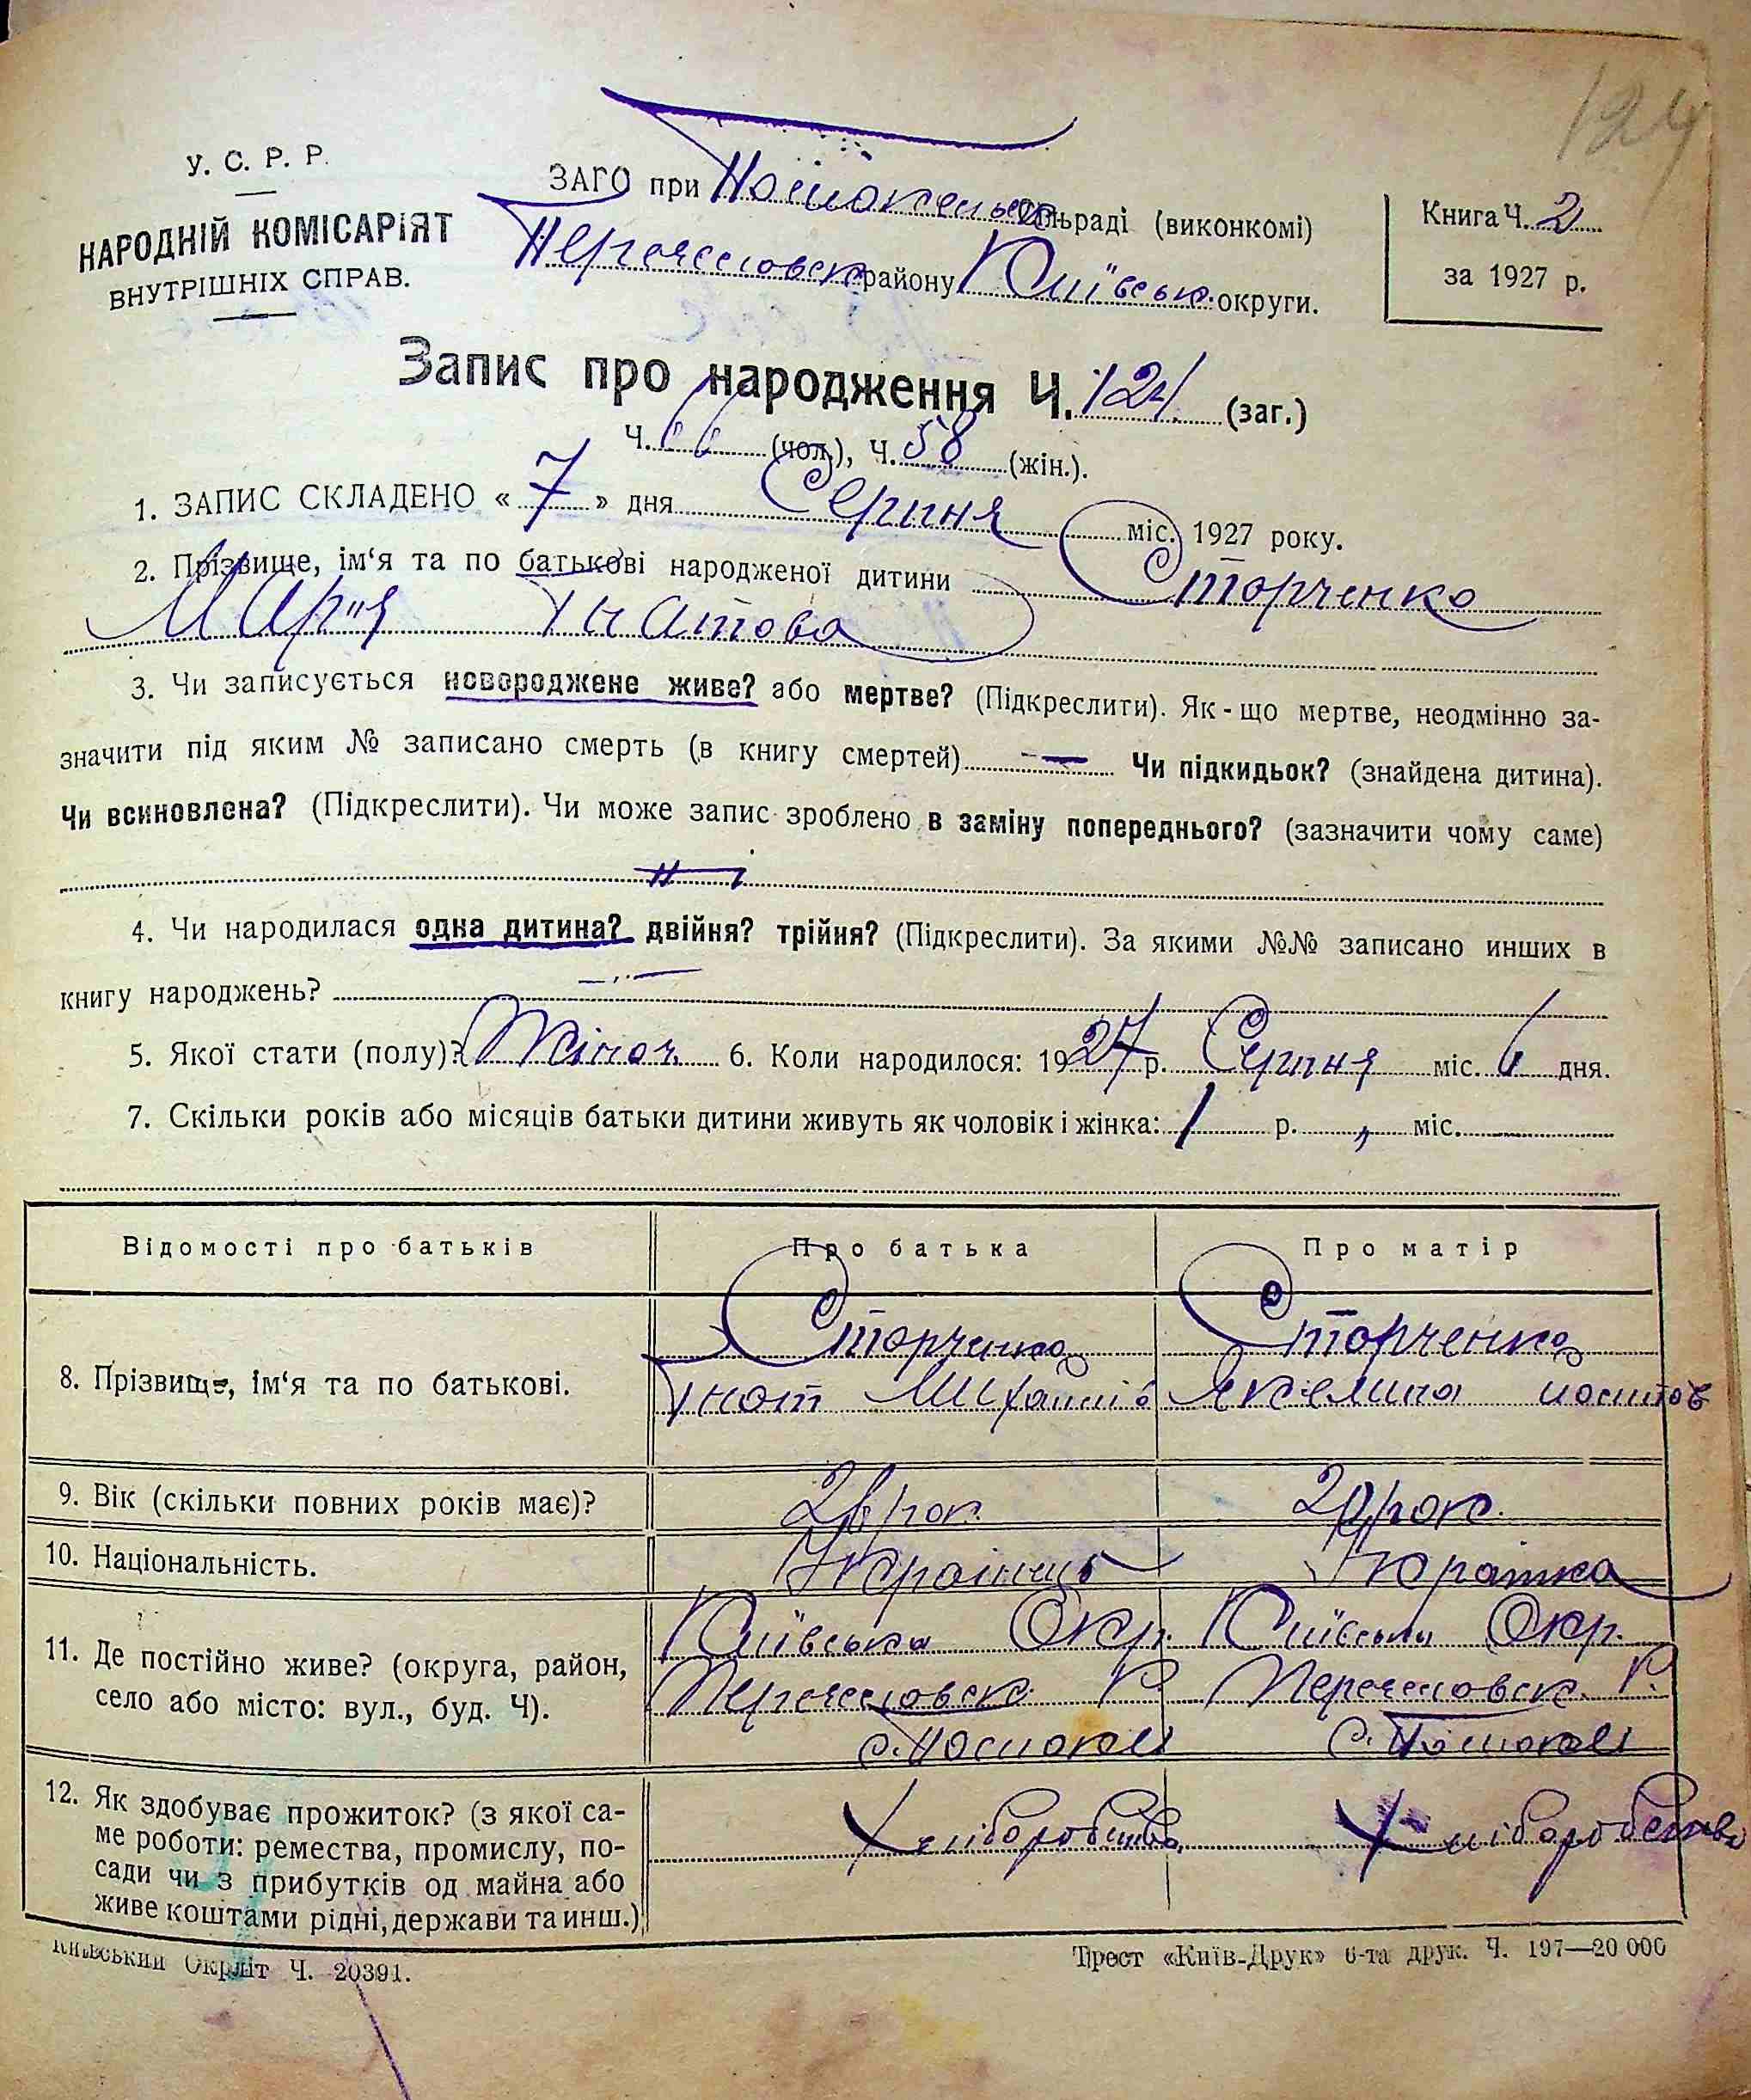 124
У. С. Р. Р.
НАРОДНІЙ КОМІСАРІЯТ
ВНУТРІШНІХ СПРАВ.
ЗАГО при Пошокеньк Сільраді (виконкомі)
району Київськ. округи.
Книга Ч. 2
за 1927 р.
Запис про народження Ч. 124 (заг.)
Ч. 66 (чол.), Ч. 58 (жін.).
1. ЗАПИС СКЛАДЕНО « 7 » дня Серпня міс. 1927 року.
2. Прізвище, ім‘я та по батькові народженої дитини Сторченко
Марія Гнатова
3. Чи записується новороджене живе? або мертве? (Підкреслити). Як-що мертве, неодмінно за-
значити під яким № записано смерть (в книгу смертей) — Чи підкидьок? (знайдена дитина).
Чи всиновлена? (Підкреслити). Чи може запис зроблено в заміну попереднього? (зазначити чому саме)
4. Чи народилася одна дитина? двійня? трійня? (Підкреслити). За якими №№ записано инших в
книгу народжень? —
5. Якої стати (полу)? Жіноч. 6. Коли народилося: 1927 р. Серпня міс. 6 дня.
7. Скільки років або місяців батьки дитини живуть як чоловік і жінка: 1 р. „ міс.
Відомості про батьків Про батька Про матір
8. Прізвище, ім‘я та по батькові.
Сторченко
Гнат Михайлів
Сторченко
9. Вік (скільки повних років має)? 26 рок. 20 рок.
10. Національність. Українець Українка
11. Де постійно живе? (округа, район,
село або місто: вул., буд. Ч).
Київська Окр.
Київська Окр.
12. Як здобуває прожиток? (з якої са-
ме роботи: ремества, промислу, по-
сади чи з прибутків од майна або
живе коштами рідні, держави та инш.)
Хліборобство
Хліборобство
Київський Окрліт Ч. 20391.
Трест «Київ-Друк» 6-та друк. Ч. 197—20 000